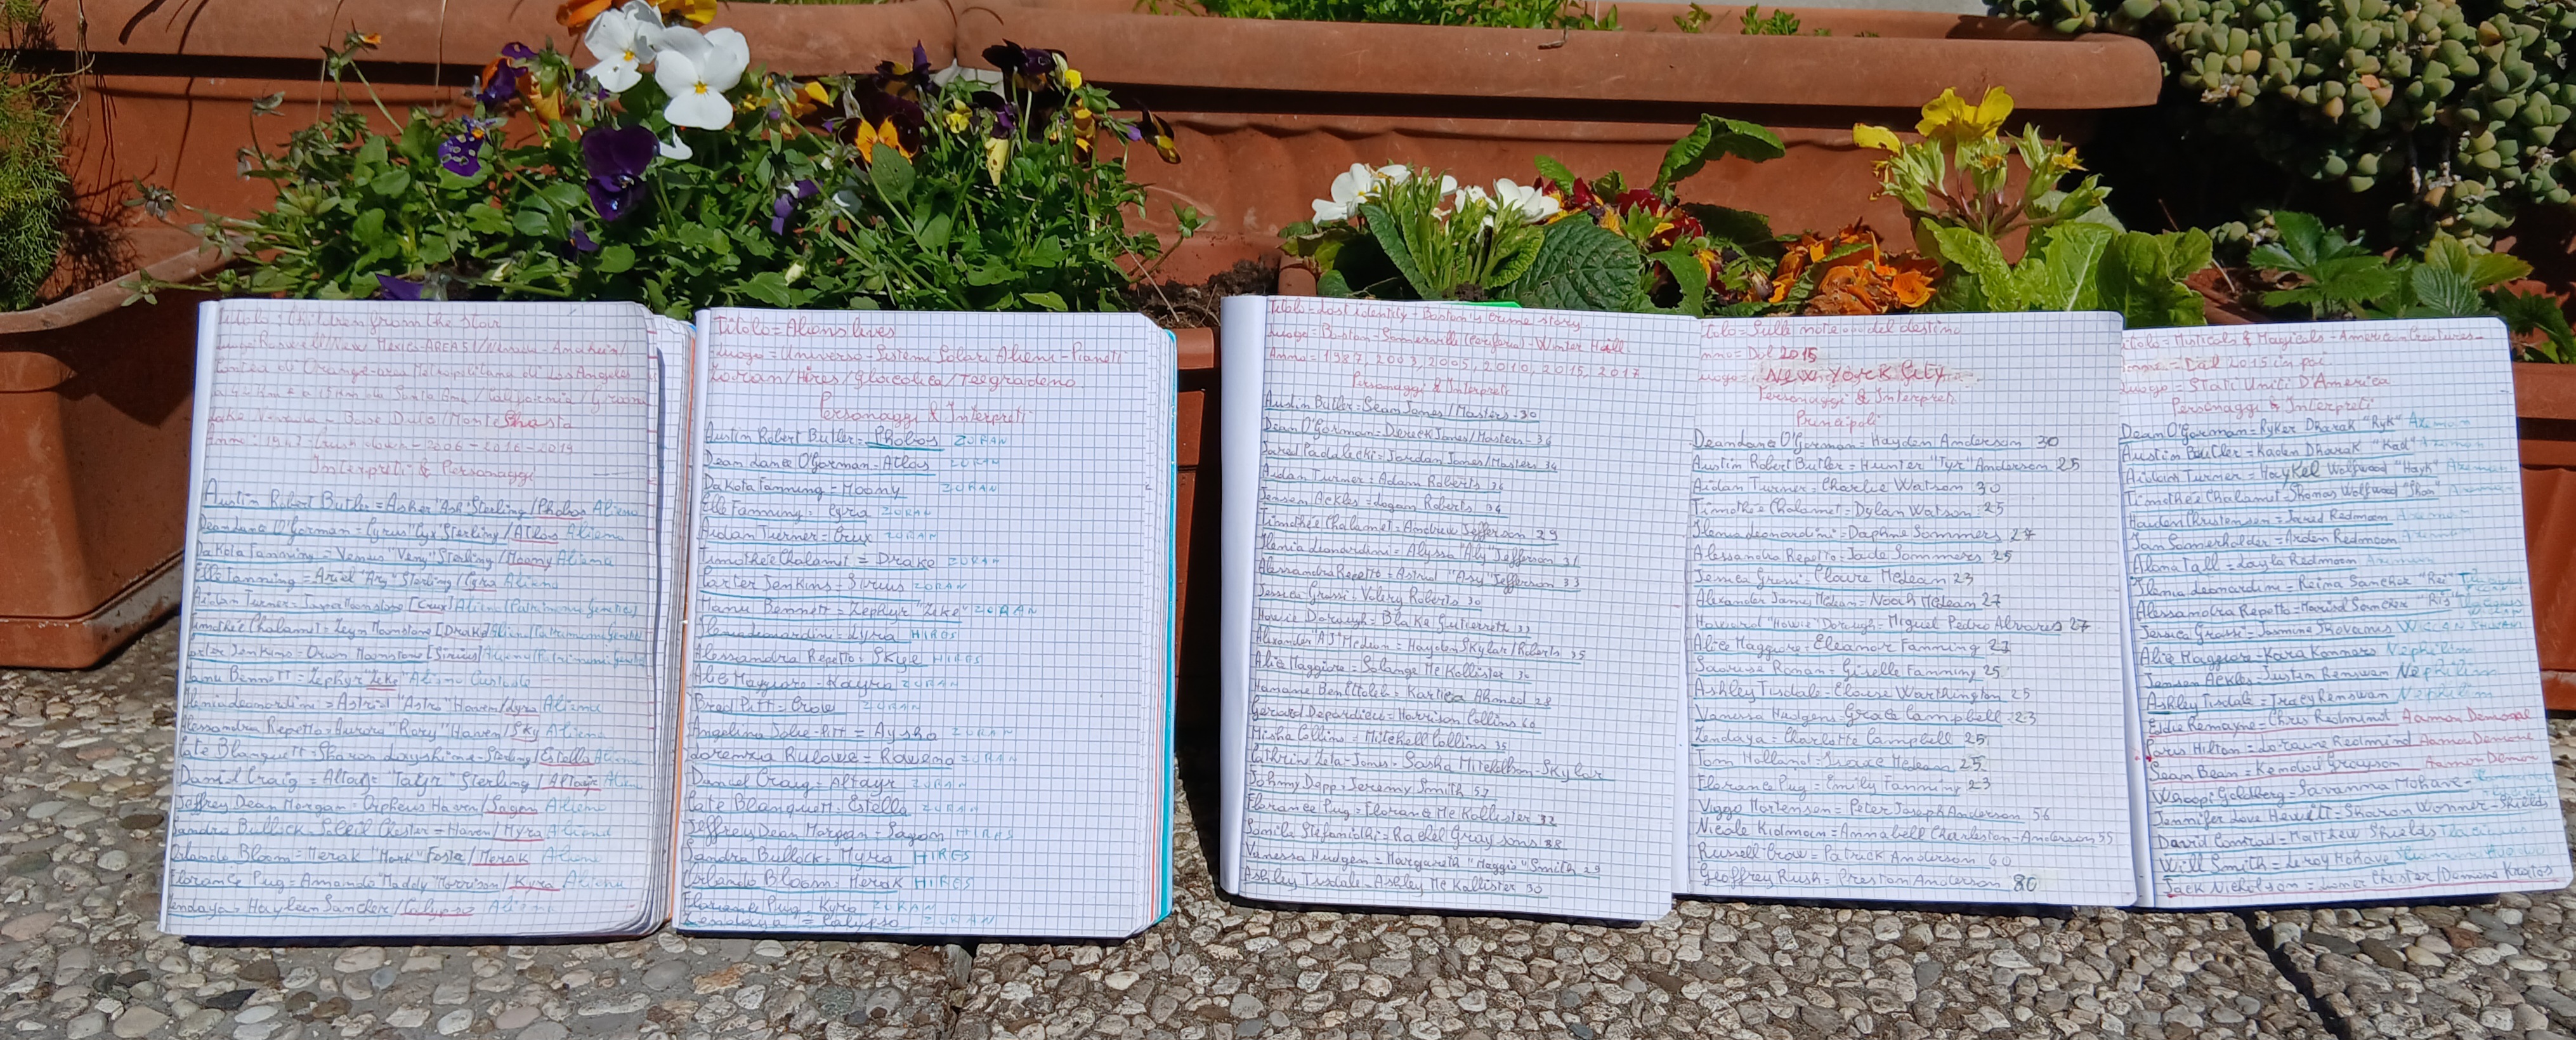 Titolo: Children from the Star
Luogo: Roswell/New Mexico-AREA51/Nevada-Anaheim/
Contea di Orange-area Metropolitana di Los Angeles
Lake Nevada - Base Dulce/Monte Shasta
2006-2016-2019
Interpreti & Personaggi
Austin Robert Butler = Asher "Ash" Sterling/Phobos Alieno
Deandana O'Gorman = Cyrus "Cyx" Sterling/Atlas Alieno
Dakota Fanning = Venus "Veny" Sterling/Moony Aliena
Elle Fanning = Ariel "Ary" Sterling/Lyra Aliena
Aidan Turner = Moonstone [Crux] Alieno (Patrimonio Genetico)
Timothée Chalamet = Zeyn Moonstone [Drake] Alieno
Carter Jenkins = Orion Moonstone [Sirius] Alieno
Manu Bennett = Zephyr "Zeke" Alieno Custode
Ilenia Leonardini = Astrid "Astro" Haven/Lyra Aliena
Alessandra Repetto = Aurora "Rory" Haven/Sky Aliena
Cate Blanquett = Sharon Sterling/Estella Aliena
Daniel Craig = Altayr "Tayr" Sterling/Altayr Alieno
Jeffrey Dean Morgan = Orpheus Haven/Sagan Alieno
Sandra Bullock = Soleil Chester = Haven/Myra Aliena
Orlando Bloom = Merak "Mark" Foster/Merak Alieno
Florance Pug = Amanda "Maddy" Morrison/Kyra Aliena
Zendaya = Hayleen Sancher/Calypso Aliena
Titolo = Aliens lives
Luogo = Universo - Sistemi Solari Alieni - Pianeti
Zoran/Hires/Glaceolica/Teegradeno
Personaggi & Interpreti
Austin Robert Butler = Phobos ZORAN
Dean Dana O'Gorman = Atlas ZORAN
Dakota Fanning = Moony ZORAN
Elle Fanning = Lyra ZORAN
Aidan Turner = Crux ZORAN
Timothée Chalamet = Drake ZORAN
Carter Jenkins = Sirius ZORAN
Manu Bennett = Zephyr "Zeke" ZORAN
Ilenia Leonardini = Lyra HIRES
Alessandra Repetto = Skye HIRES
Alie Maggiore = Kayra ZORAN
Bred Pitt = Crow ZORAN
Angelina Jolie-Pitt = Aysha ZORAN
Lorenza Rulowe = Rowena ZORAN
Daniel Craig = Altayr ZORAN
Cate Blanquett = Estella ZORAN
Jeffrey Dean Morgan = Sagan HIRES
Sandra Bullock = Myra HIRES
Orlando Bloom = Merak HIRES
Florance Pug = Kyra ZORAN
Zendaya = Calypso ZORAN
Titolo = Lost identity - Boston's crime story
Luogo = Boston - Sommerville (Periferia) - Winter Hill
Anno = 1987, 2003, 2005, 2010, 2015, 2017
Personaggi & Interpreti
Austin Butler = Sean Jones/Masters - 30
Dean O'Gorman = Dereck Jones/Masters - 36
Jared Padalecki = Jordan Jones/Masters 34
Aidan Turner = Adam Roberts 36
Jensen Ackles = Logan Roberts 34
Timothée Chalamet = Andrew Jefferson 29
Ilenia Leonardini = Alyssa "Aly" Jefferson 31
Alessandra Repetto = Astrid "Asy" Jefferson 33
Jessica Grossi = Valery Roberts 30
Howie Dorough = Blake Gutierreth 33
Alexander "AJ" Mclean = Hayden Skylar/Roberts 35
Alie Maggiore = Solange Mc Kollister 30
Hanane Benttoleb = Kartica Ahmed 28
Gerard Depardieu = Harrison Collins 60
Misha Collins = Mitchell Collins 35
Cathrine Zeta-Jones = Sasha Mitchellson-Skylar
Johnny Depp = Jeremy Smith 57
Florance Pug = Florance Mc Kollister 32
Samila Stefanichi = Rachel Graysons 38
Vanessa Hudgen = Margareth "Maggie" Smith 29
Ashley Tisdale = Ashley Mc Kollister 30
Titolo = Sulle note... del destino
Anno = Dal 2015
Luogo = New York City
Personaggi & Interpreti
Principali
Deandana O'Gorman = Hayden Anderson 30
Austin Robert Butler = Hunter "Tyr" Anderson 25
Aidan Turner = Charlie Watson 30
Timothée Chalamet = Dylan Watson 25
Ilenia Leonardini = Daphne Sommers 27
Alessandra Repetto = Jade Sommers 25
Jessica Grossi = Claire Mclean 23
Alexander James Mclean = Noah Mclean 27
Howard "Howie" Dorough = Miguel Pedro Alvares 27
Alie Maggiore = Eleanor Fanning 27
Saoirse Ronan = Giselle Fanning 25
Ashley Tisdale = Eloise Warthington 25
Vanessa Hudgens = Grace Campbell 23
Zendaya = Charlotte Campbell 25
Tom Holland = Isaac Mclean 25
Florance Pug = Emily Fanning 23
Viggo Mortensen = Peter Joseph Anderson 56
Nicole Kidman = Annabell Charleston-Anderson 55
Russell Crow = Patrick Anderson 60
Geoffrey Rush = Preston Anderson 80
Titolo = Misticals & Magicals - American Creatures
Anno = Dal 2015 in poi
Luogo = Stati Uniti D'America
Personaggi & Interpreti
Dean O'Gorman = Ryker Dharak "Ryk"
Austin Buttler = Kaden Dharak "Kad"
Aidan Turner = Haykel Wolfwood "Hayk"
Timothée Chalamet = Shomas Wolfwood "Shom"
Hayden Christensen = Jared Redmoon
Ian Somerholder = Arden Redmoon
Alona Tall = Layla Redmoon
Ilenia Leonardini = Reina Sancher "Rei"
Alessandra Repetto = Sancher "Ris"
Jessica Grossi = Jasmine Shovanus
Alie Maggiore = Kara Konnors Nephilim
Jensen Ackles = Justin Renswan Nephilim
Ashley Tisdale = Tracy Renswan Nephilim
Eddie Remayne = Chris Redmind Aamon Demone
Paris Hilton = Loraine Redmind Aamon Demone
Sean Bean = Kendall Grayson Aamon Demon
Whoopi Goldberg = Savanna Mohave
Jennifer Love Hewitt = Sharon Wonner-Shields
David Conrad = Matthew Shields
Will Smith = Leroy Mohave
Jack Nicholson = Chester/Demone Kratos